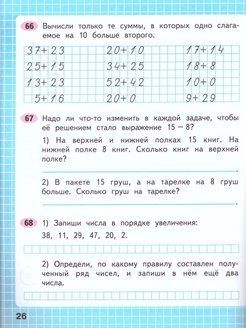 66 Вычисли только те суммы, в которых одно слага-
емое на 10 больше второго.
37+23 20+10 17+14
25+15 34+25 18+8
13+23 52+42 10+0
5+16 20+0 9+29
67 Надо ли что-то изменить в каждой задаче, чтобы
её решением стало выражение 15–8?
1) На верхней и нижней полках 15 книг. На
нижней полке 8 книг. Сколько книг на верхней
полке?
2) В пакете 15 груш, а на тарелке на 8 груш
больше. Сколько груш на тарелке?
68 1) Запиши числа в порядке увеличения:
38, 11, 29, 47, 20, 2.
2) Определи, по какому правилу составлен полу-
ченный ряд чисел, и запиши в нём ещё два
числа.
26